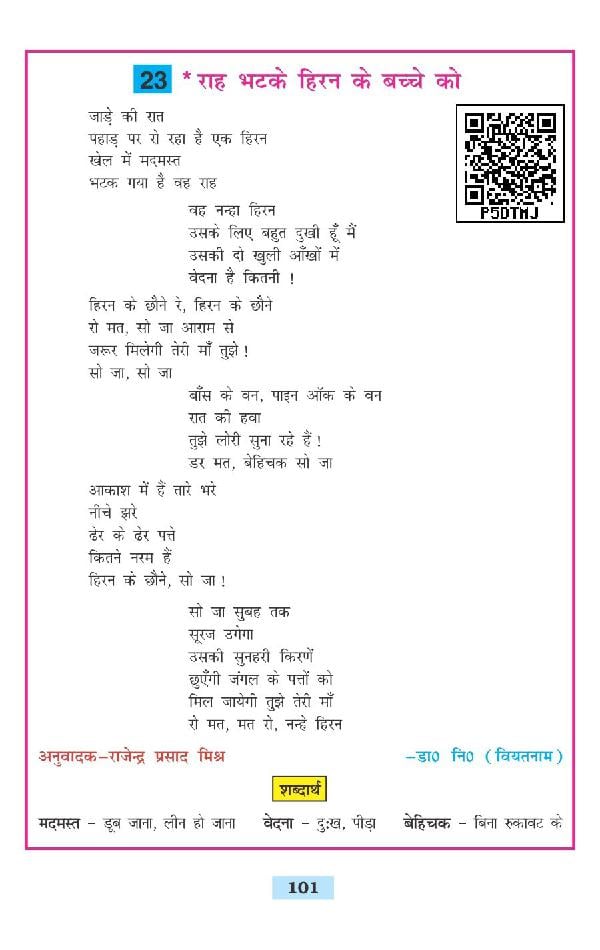 23 * राह भटके हिरन के बच्चे को
जाड़े की रात
पहाड़ पर रो रहा है एक हिरन
खेल में मदमस्त
भटक गया है वह राह
P5DTMJ
वह नन्हा हिरन
उसके लिए बहुत दुखी हूँ मैं
उसकी दो खुली आँखों में
वेदना है कितनी !
हिरन के छौने रे, हिरन के छौने
रो मत, सो जा आराम से
जरूर मिलेगी तेरी माँ तुझे !
सो जा, सो जा
बाँस के वन, पाइन ऑक के वन
रात की हवा
तुझे लोरी सुना रहे हैं !
डर मत, बेहिचक सो जा
आकाश में हैं तारे भरे
नीचे झरे
ढेर के ढेर पत्ते
कितने नरम हैं
हिरन के छौने, सो जा !
सो जा सुबह तक
सूरज उगेगा
उसकी सुनहरी किरणें
छुएँगी जंगल के पत्तों को
मिल जायेगी तुझे तेरी माँ
रो मत, मत रो, नन्हे हिरन
अनुवादक–राजेन्द्र प्रसाद मिश्र –डा0 नि0 (वियतनाम)
शब्दार्थ
मदमस्त – डूब जाना, लीन हो जाना वेदना – दुःख, पीड़ा बेहिचक – बिना रुकावट के
101